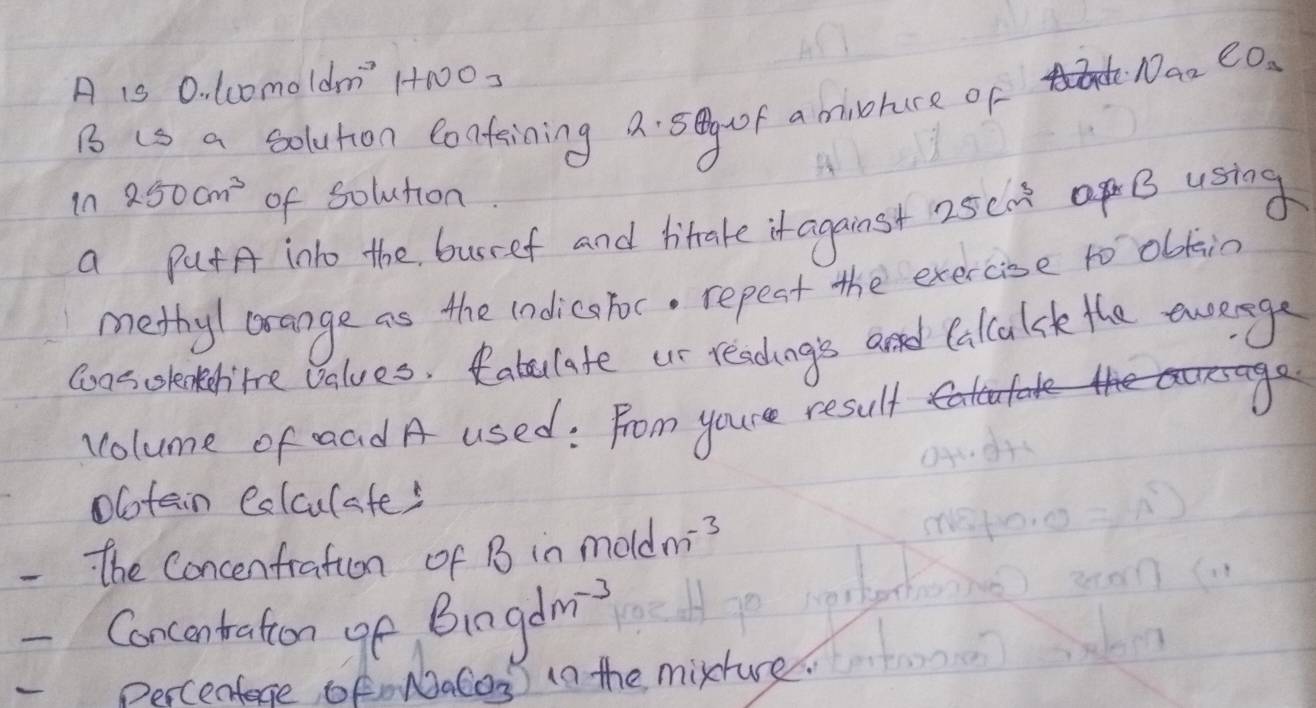 A is 0.100moldm⁻³ HNO3
B is a solution containing 2.50g of a mixture of Na2 CO3
in 250cm³ of solution.
a put A into the burret and titrate it against 25cm³ of B using
methyl orange as the indicator. repeat the exercise to obtain
titre values. tabulate ur reading's and calculate the average
volume of acid A used. From your result
obtain calculate:
- The Concentration of B in moldm⁻³
- Concentration of B in gdm⁻³
- percentage of NaCO3 in the mixture.